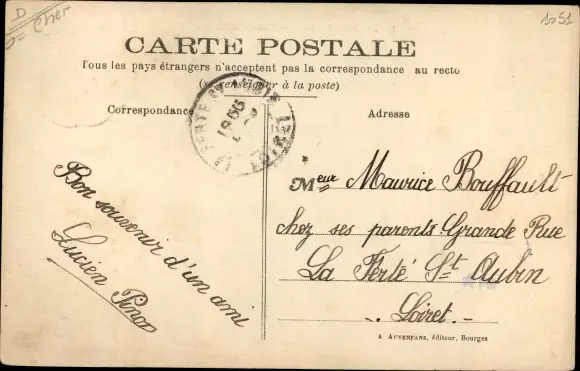 D
Cher
1051
CARTE POSTALE
Tous les pays étrangers n'acceptent pas la correspondance au recto
(se renseigner à la poste)
Correspondance
Adresse
Bon souvenir d'un ami
Lucien Pinon
Meur Maurice Bouffault
chez ses parents Grande Rue
La Ferté St Aubin
Loiret.
A. AUXENFANS, éditeur, Bourges